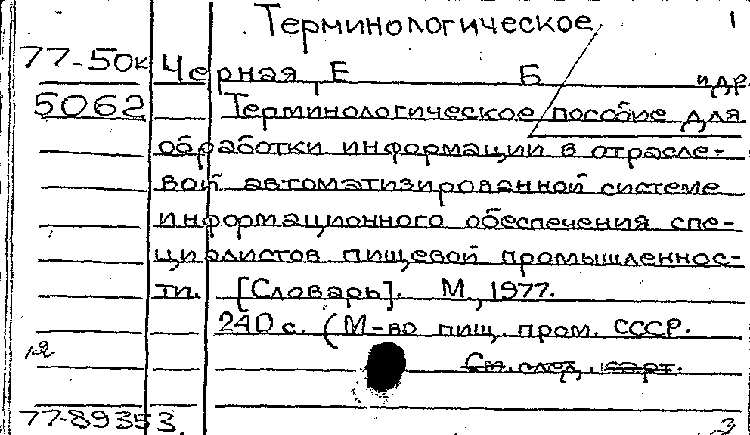 Терминологическое 1
77-50к Черная, Е Б и др.
5062 Терминологическое пособие для
обработки информации в отрасле-
вой автоматизированной системе
информационного обеспечения спе-
циалистов пищевой промышленнос-
ти. [Словарь]. М., 1977.
240 с. (М-во пищ. пром. СССР.
См. след. карт.
77-89353. 3